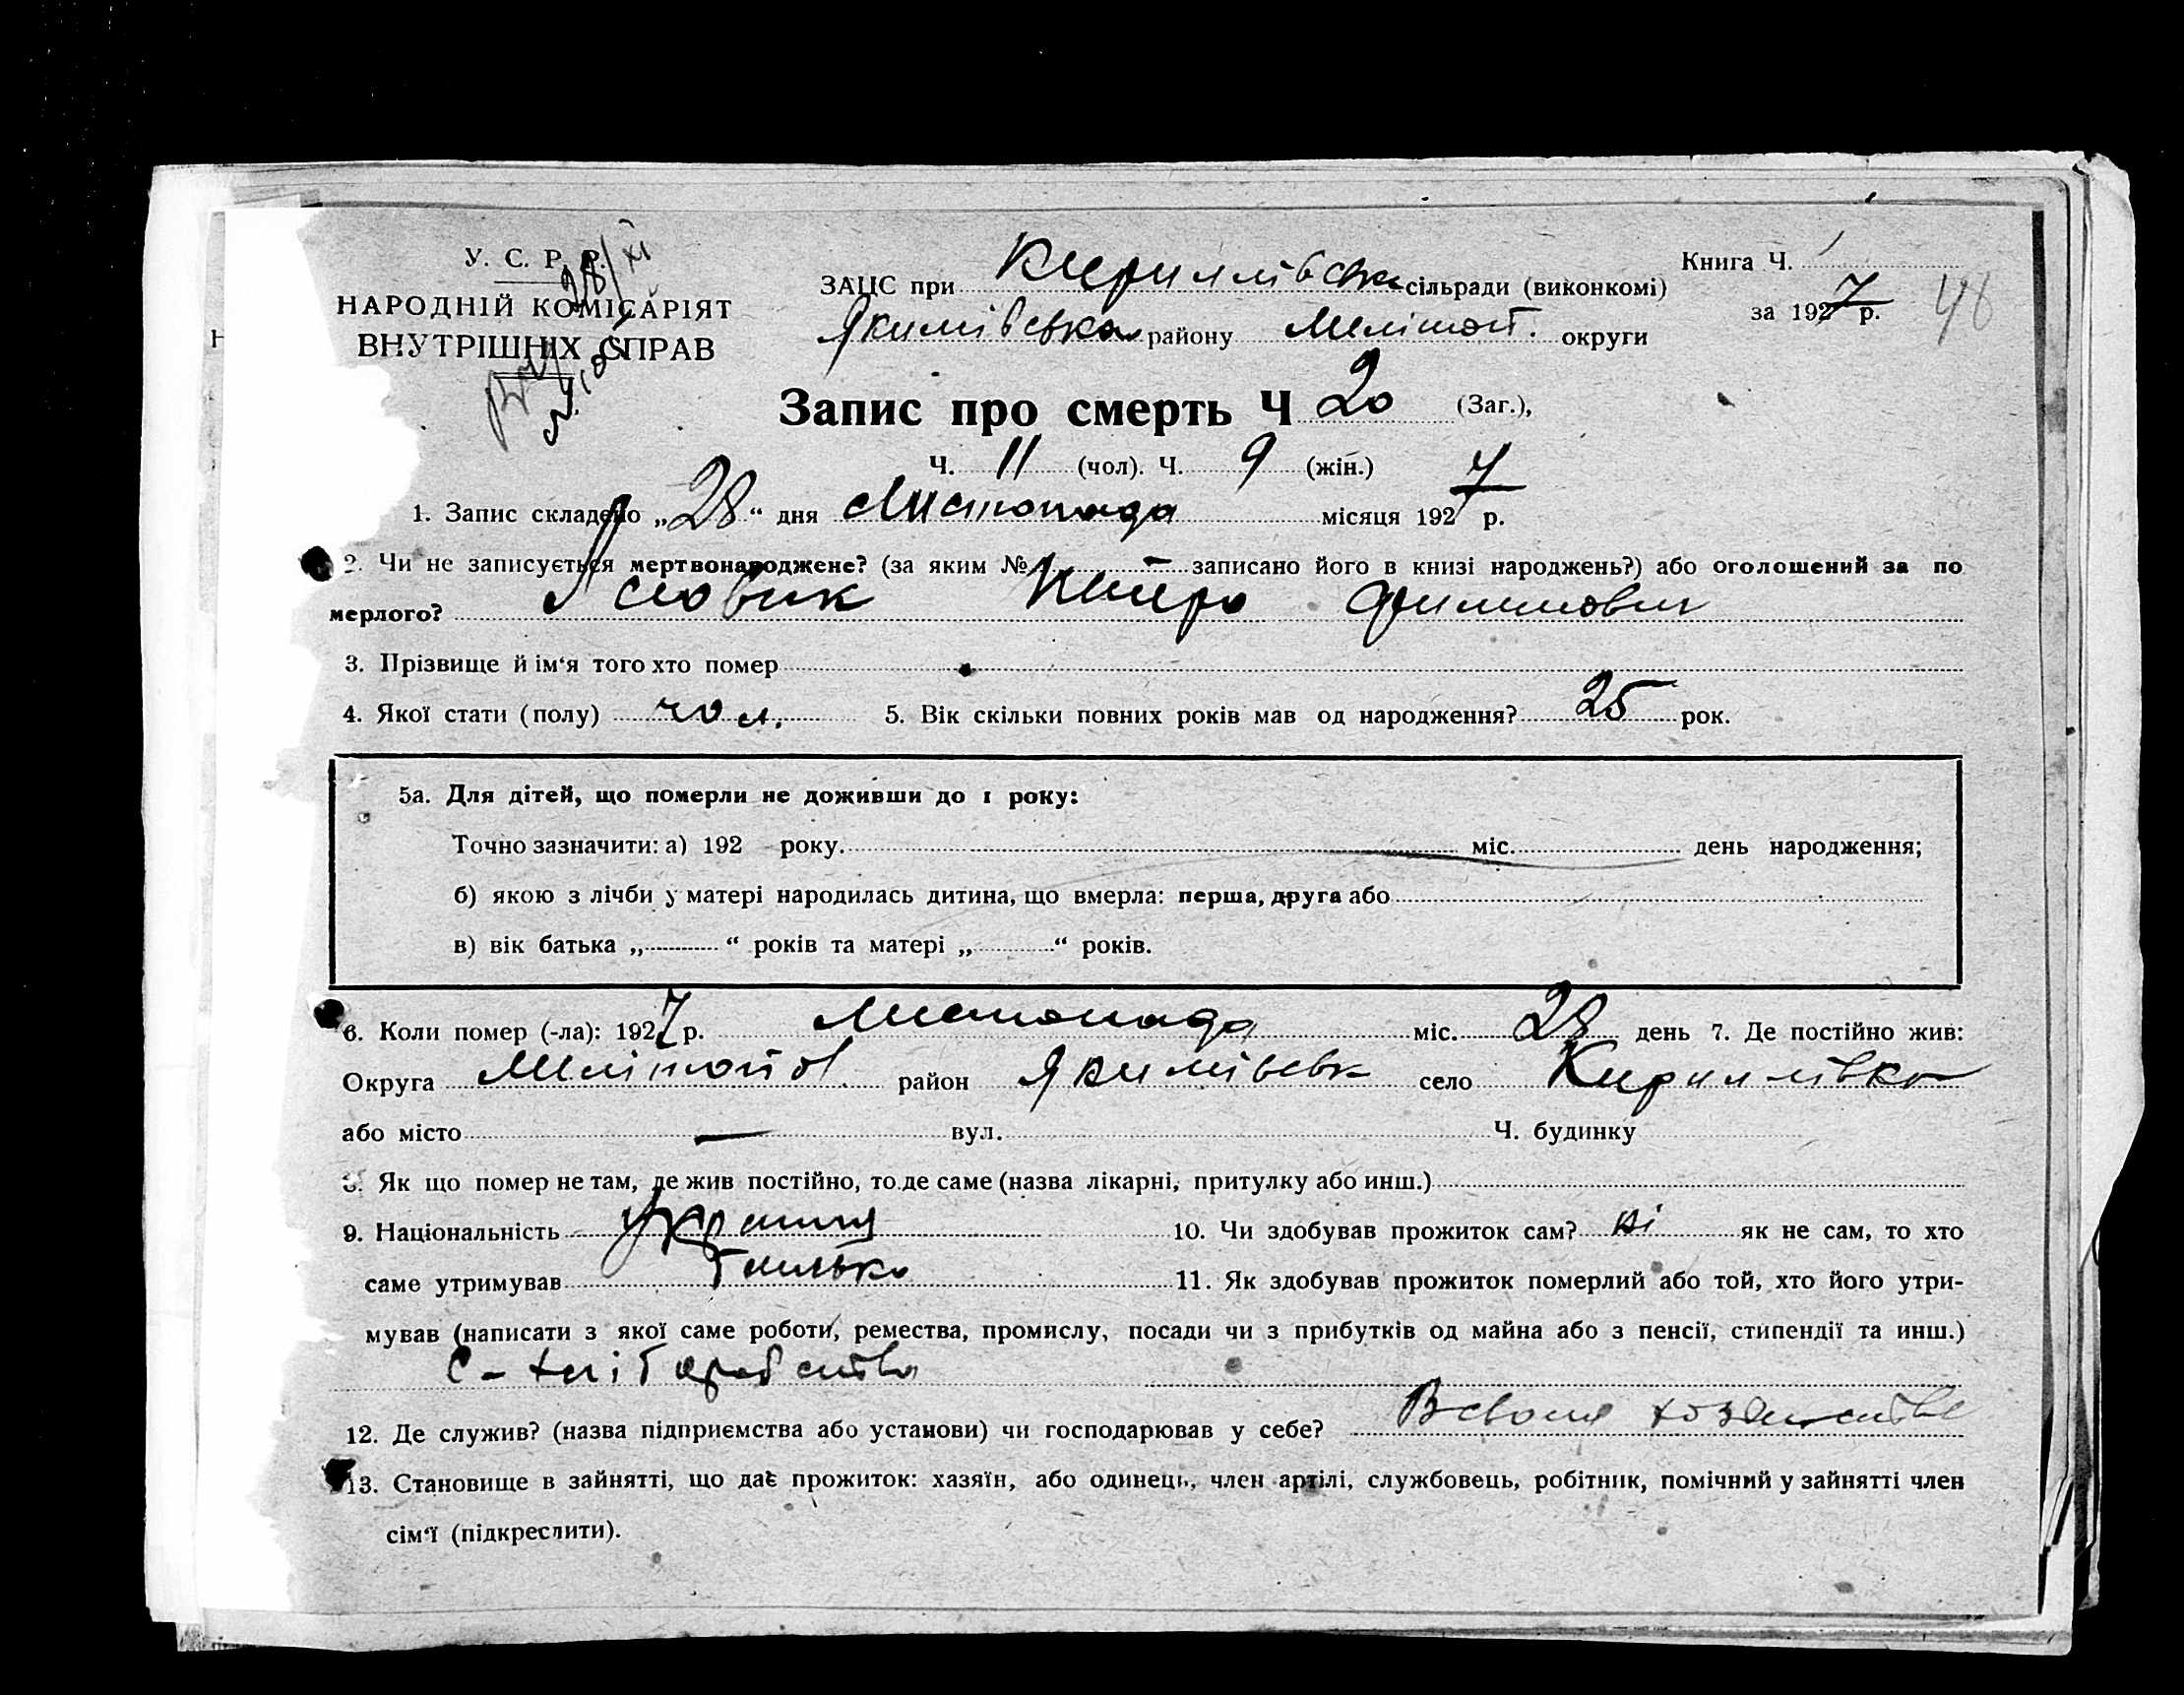 У. С. Р. Р.
НАРОДНІЙ КОМІСАРІЯТ
ВНУТРІШНІХ СПРАВ
28/XI
ЗАЦС при Кириллівська сільради (виконкомі)
Якимівська району Мелітоп. округи
Книга Ч. 1
за 1927 р.
48
Запис про смерть Ч 20 (Заг.),
Ч. 11 (чол). Ч. 9 (жін.)
1. Запис складено „28“ дня Листопада місяця 1927 р.
2. Чи не записується мертвонароджене? (за яким № записано його в книзі народжень?) або оголошений за по
мерлого?
3. Прізвище й ім‘я того хто помер
4. Якої стати (полу) чол. 5. Вік скільки повних років мав од народження? 25 рок.
5а. Для дітей, що померли не доживши до 1 року:
Точно зазначити: а) 192 року. міс. день народження;
б) якою з лічби у матері народилась дитина, що вмерла: перша, друга або
в) вік батька „ “ років та матері „ “ років.
6. Коли помер (-ла): 1927 р. Листопада міс. 28 день 7. Де постійно жив:
Округа район Якимівськ село Кириллівка
або місто — вул. Ч. будинку
8. Як що помер не там, де жив постійно, то де саме (назва лікарні, притулку або инш.)
9. Національність 10. Чи здобував прожиток сам? ні як не сам, то хто
саме утримував батько 11. Як здобував прожиток померлий або той, хто його утри-
мував (написати з якої саме роботи, ремества, промислу, посади чи з прибутків од майна або з пенсії, стипендії та инш.)
12. Де служив? (назва підприємства або установи) чи господарював у себе?
13. Становище в зайнятті, що дає прожиток: хазяїн, або одинець, член артілі, службовець, робітник, помічний у зайнятті член
сім‘ї (підкреслити).